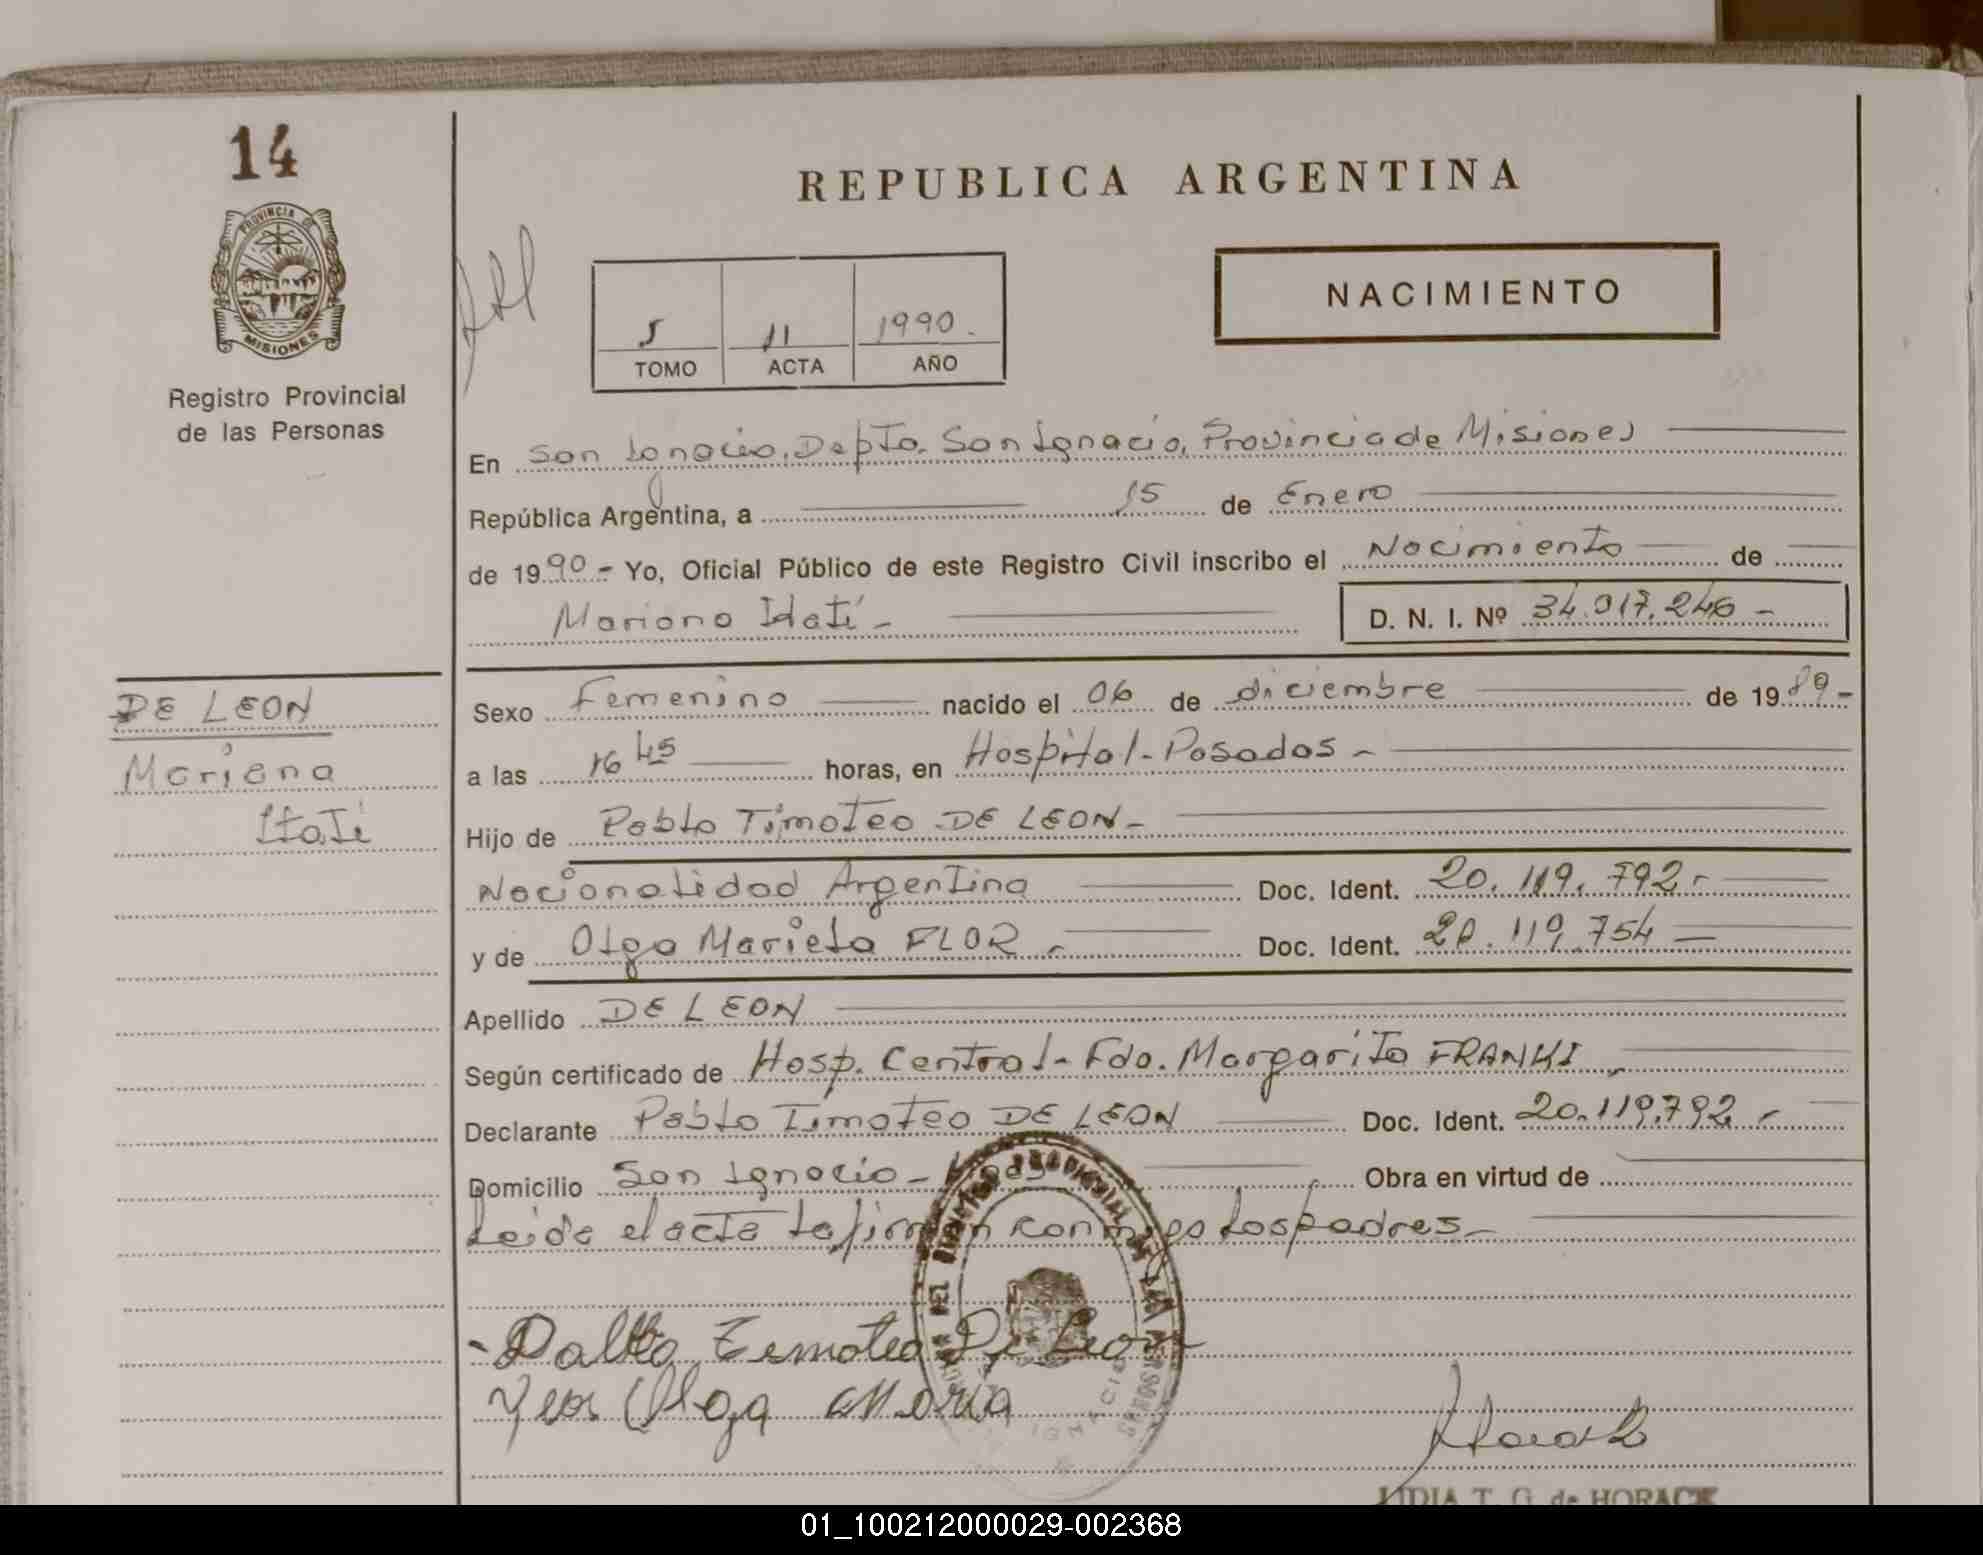 14
PROVINCIA DE
MISIONES
Registro Provincial
de las Personas
REPUBLICA ARGENTINA
NACIMIENTO
5 11 1990.
TOMO ACTA AÑO
En San Ignacio, Depto. San Ignacio, Provincia de Misiones
República Argentina, a 15 de Enero
de 1990- Yo, Oficial Público de este Registro Civil inscribo el Nacimiento de
Mariana Itatí- D. N. I. Nº 34.017.246-
DE LEON
Mariana
Itatí
Sexo Femenino nacido el 06 de diciembre de 1989-
a las 16 45 horas, en Hospital-Posadas-
Hijo de Pablo Timoteo DE LEON-
Nacionalidad Argentina Doc. Ident. 20.119.792-
y de Olga Mariela FLOR.- Doc. Ident. 20.119.754
Apellido DE LEON
Según certificado de Hosp. Central-Fdo. Margarita FRANKI
Declarante Pablo Timoteo DE LEON Doc. Ident. 20.119.792.-
Domicilio San Ignacio- Obra en virtud de
Leida el acta la firman conmigo los padres-
-Pablo Timoteo De Leon
Olga Maria
LIDIA T. G. de HORACK
01_100212000029-002368